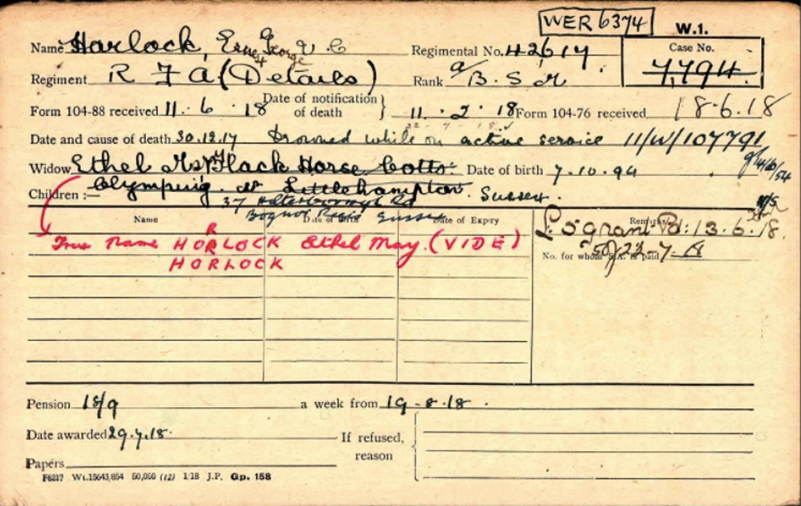 WER 6374
W.1.
Name Harlock, Ernest George V C Regimental No. 42617 Case No.
7,794.
Regiment R F A (Details) Rank a/B. S. M
Form 104-88 received 11. 6. 18 Date of notification of death } 11. 2. 18 Form 104-76 received 18.6.18
Date and cause of death 30.12.17 Drowned while on active service 11/W/107791
Widow Ethel Black Horse Cotts: Date of birth 7.10.94
Children :— Olympuig. Nr Littlehampton. Sussex.
37 Rd
Bognor Regis Sussex
Name Date of Birth Date of Expiry Remarks
grant Pd: 13.6.18.
True Name HORLOCK Ethel May. (VIDE)
No. for whom S.A. is paid 23-7-
HORLOCK
Pension 18/9 a week from 19-8-18.
Date awarded 29.7.18. If refused, reason
Papers
F6237 Wt.15643,864 50,000 (12) 1/18 J.P. Gp. 158